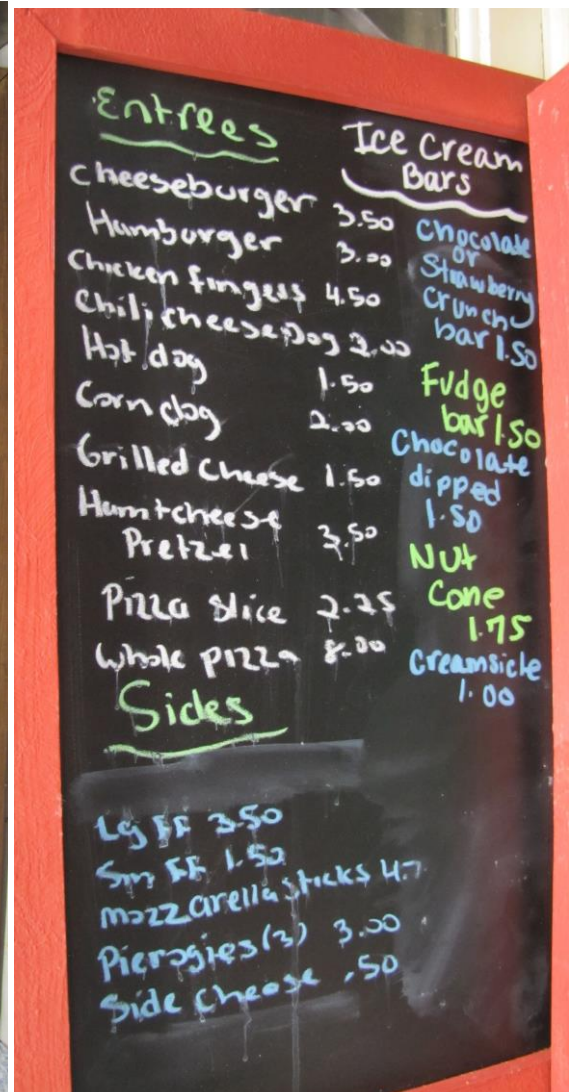 Entrees
Cheeseburger 3.50
Hamburger 3.00
Chicken fingers 4.50
Chili cheese Dog 2.00
Hot dog 1.50
Corn dog 2.00
Grilled Cheese 1.50
Ham+cheese
Pretzel 3.50
Pizza Slice 2.25
Whole pizza 8.00
Sides
Lg FF 3.50
Sm FF 1.50
mozzarella sticks
Pierogies (3) 3.00
Side Cheese .50
Ice Cream
Bars
Chocolate
or
Strawberry
Crunch
bar 1.50
Fudge
bar 1.50
Chocolate
dipped
1.50
Nut
Cone
1.75
Creamsicle
1.00